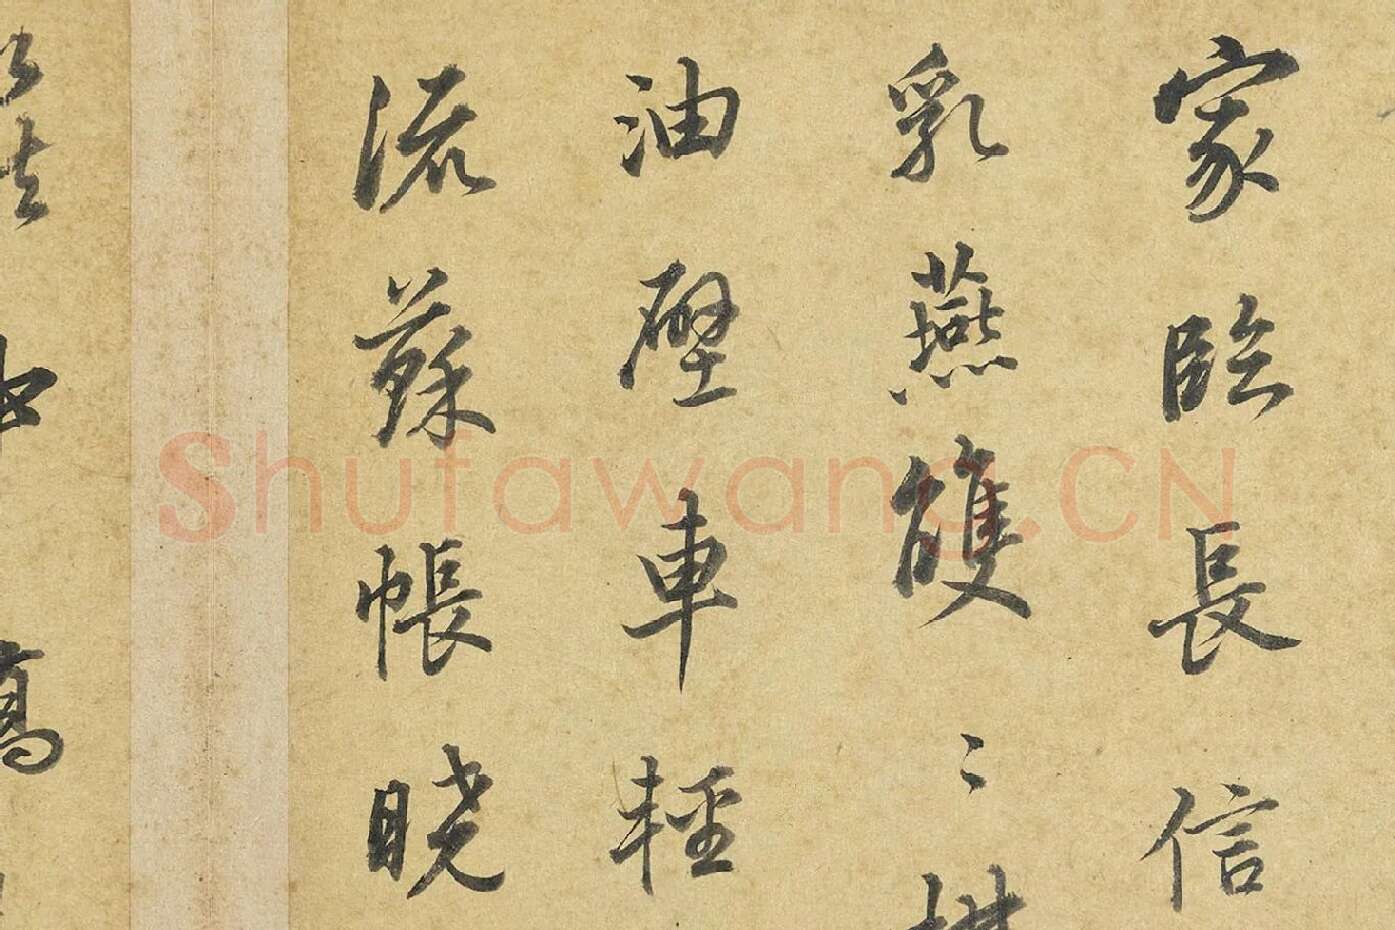 家臨長信
乳燕雙〻
油壁車輕
流蘇帳曉
Shufawang.CN